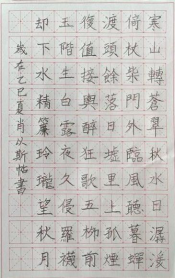 寒山轉蒼翠秋水日潺湲
倚杖柴門外臨風聽暮蟬
渡頭餘落日墟里上孤煙
復值接輿醉狂歌五柳前
玉階生白露夜久侵羅襪
却下水精簾玲瓏望秋月
歲在乙巳夏肖以斯帖書